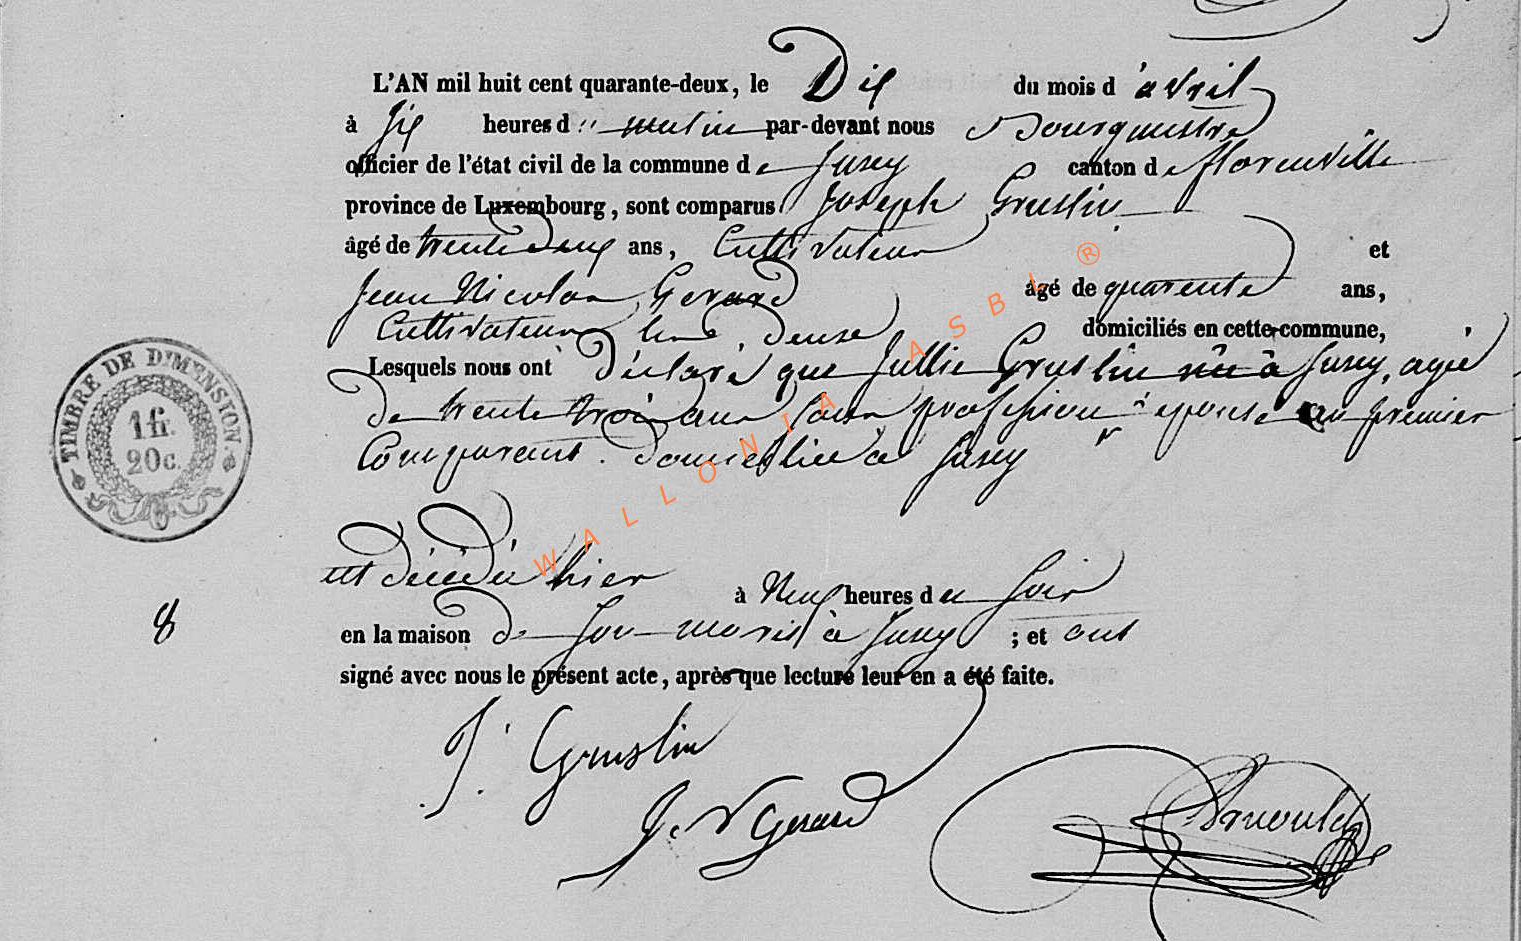 L'AN mil huit cent quarante-deux, le Dix du mois d'avril
à six heures du matin par-devant nous Bourguestre
officier de l'état civil de la commune de Jusey canton de florenville
province de Luxembourg, sont comparus Joseph Gruslin
âgé de trente deux ans, Cultivateur et
Jean Nicolas Gerard âgé de quarente ans,
Cultivateur domiciliés en cette commune,
Lesquels nous ont déclaré que Jullie Gruslin née à Jusey, agée
de trente trois ans sans profession épouse au premier
Comparant. domiciliée à Jusey
est décédée hier à Neuf heures du soir
en la maison de son maris à Jusey ; et ont
signé avec nous le présent acte, après que lecture leur en a été faite.
J. Gruslin
J. N Gerard
Arnould
8
TIMBRE DE DIMENSION
1 fr.
20 c.
WALLONIA ASBL ®